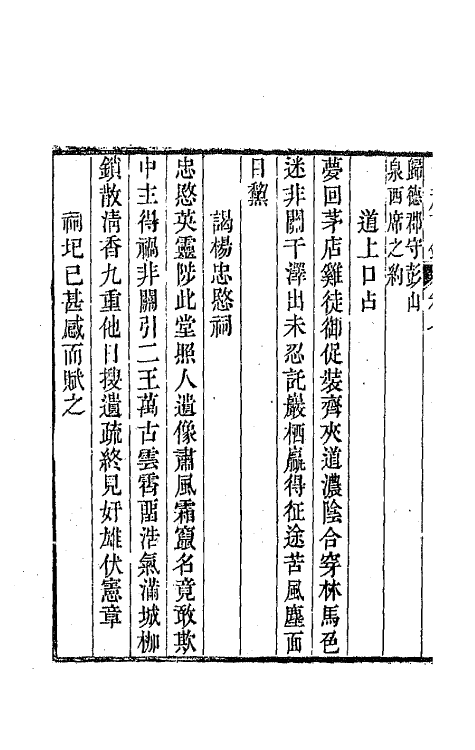 歸德郡守彭山
泉西席之約
道上口占
夢回茅店雞徒御促裝齊夾道濃陰合穿林馬色
迷非關干澤出未忍託巖栖贏得征途苦風塵面
目黧
謁楊忠愍祠
忠愍英靈陟此堂照人遺像肅風霜竄名竟敢欺
中主得禍非關引二王萬古雲霄酣浩氣滿城柳
鎖散清香九重他日搜遺疏終見奸雄伏憲章
祠圮已甚感而賦之